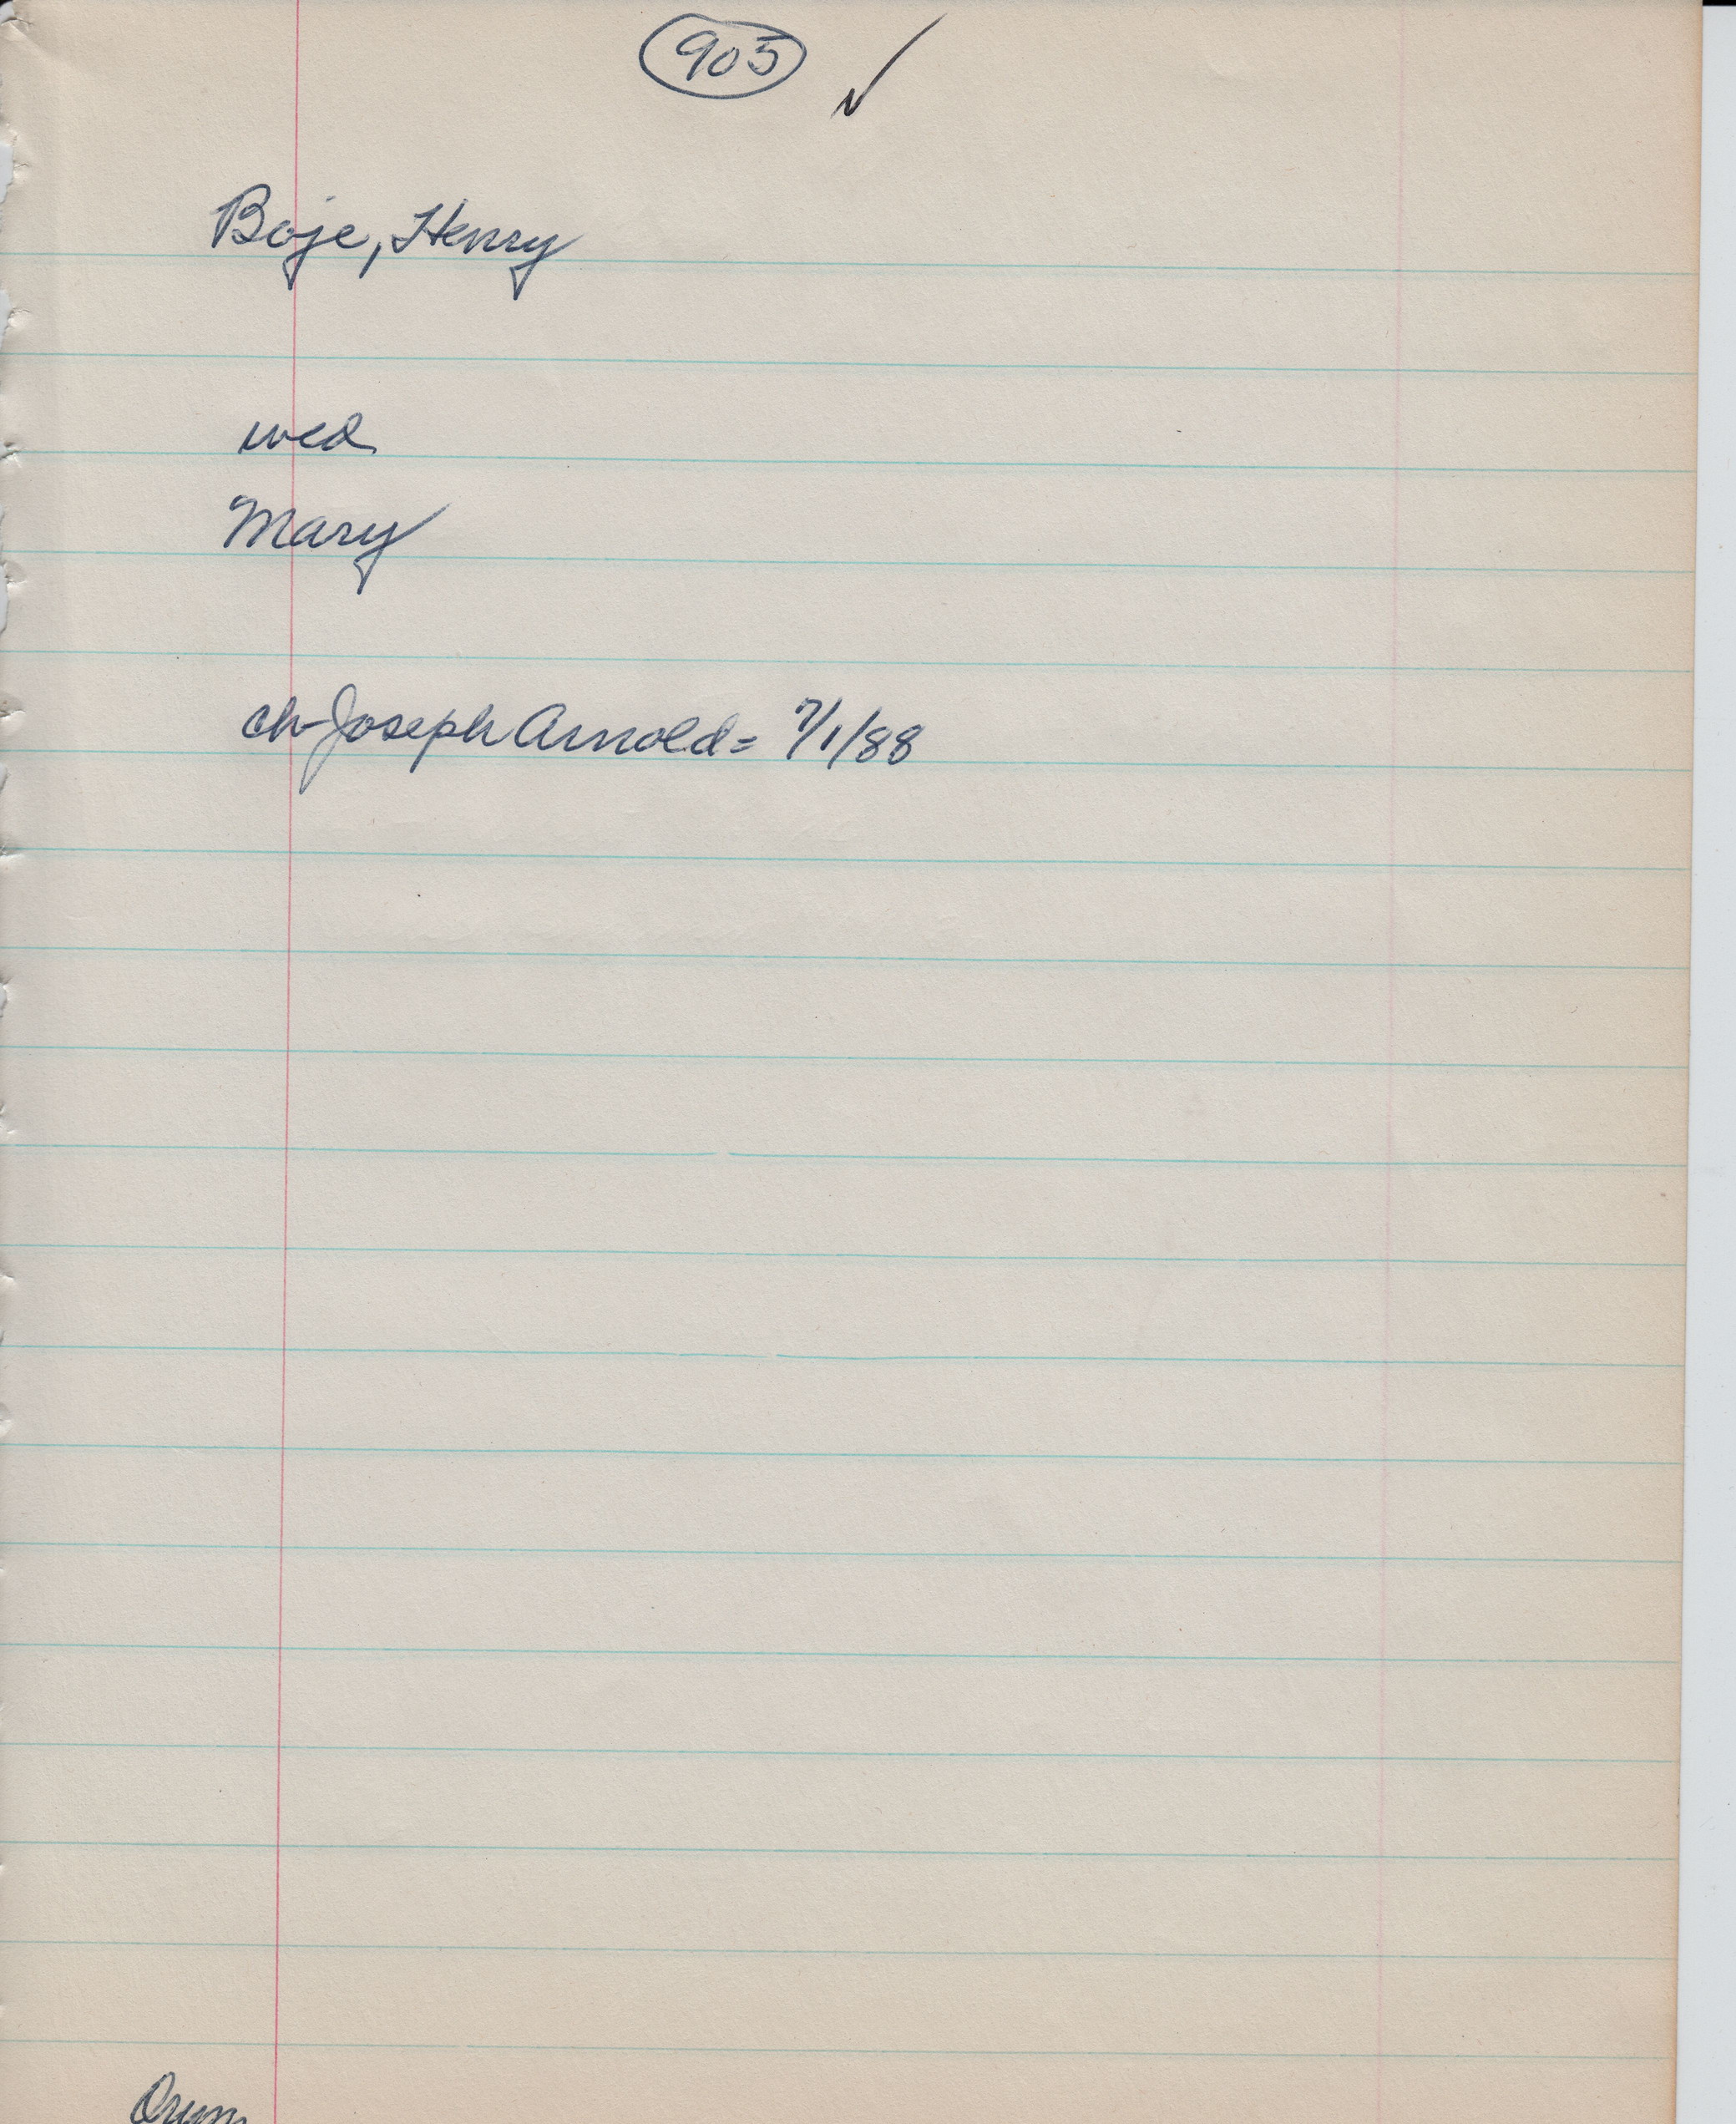 905 ✓
Boje, Henry
wed
Mary
ch-Joseph Arnold = 7/1/88